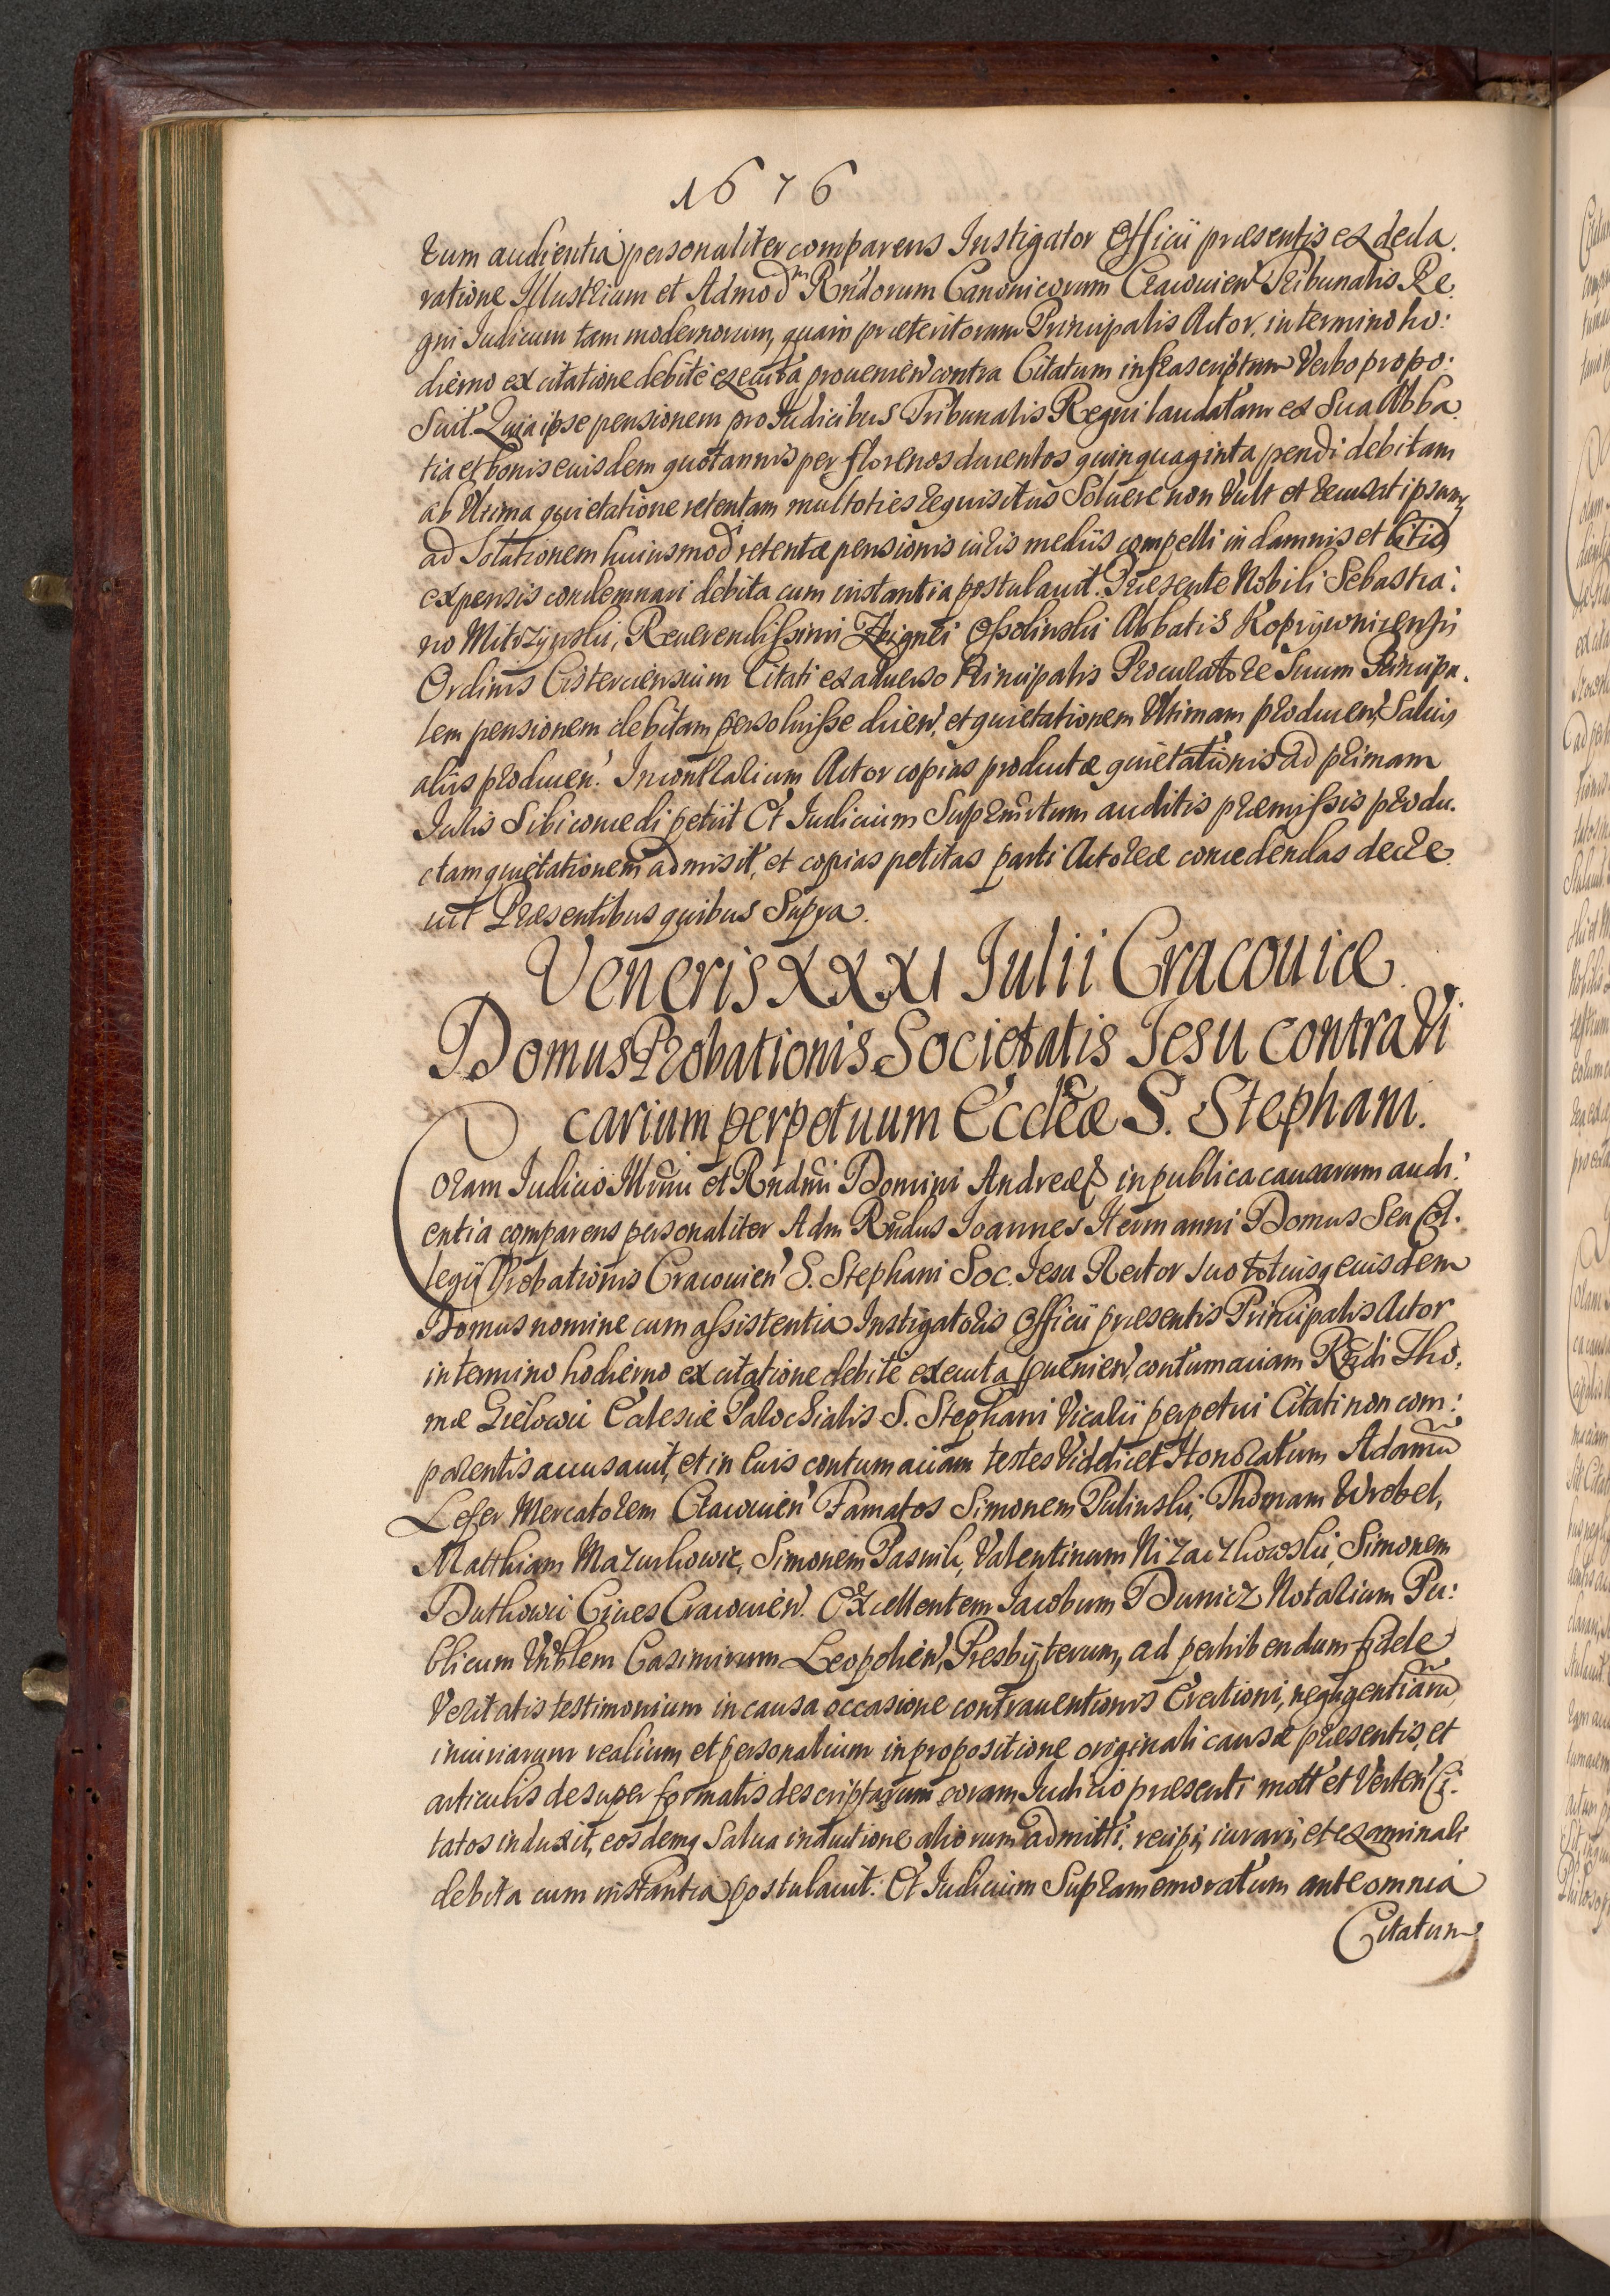 1676
rum audientia personaliter comparens Instigator Officii præsentis ex decla.
ratione Illustrium et Admodm Rndorum Canonicorum Cracouien Tribunalis Re.
gni Iudicum tam modernorum, quam præteritorum Principalis Actor, in termino ho:
dierno ex citatione debite executa prouenien contra Citatum infrascriptum Verbo propo:
suit. Quia ipse pensionem pro Iudicibus Tribunalis Regni laudatam ex Sua Abba.
tia et bonis eiusdem quotannis per florenos ducentos quinquaginta pendi debitam
ab Vltima quietatione retentam multoties requisitus Soluere non Vult et recusat ipsum,
ad Solutionem huiusmod retentæ pensionis iuris mediis compelli in damnis et litis
expensis condemnari debita cum instantia postulauit. Præsente Nobili Sebastia:
no Reuerendissimi Zbignei Ossolinski Abbatis Koprzywnicensis
Ordinis Cisterciensium Citati ex aduerso Principalis Procuratore Suum Principa.
lem pensionem debitam persoluisse dicen, et quietationem Vltimam producen, Saluis
aliis producen. In contrarium Actor copias productæ quietationis ad primam
Iuris Sibi concedi petiit Et Iudicium Suprascriptum auditis præmissis produ.
ctam quietationem admisit, et copias petitas parti Actoreæ concedendas decre.
uit Præsentibus quibus Supra.
Veneris XXXI Iulii Cracouiæ.
Domus Probationis Societatis Iesu contra Vi
carium perpetuum Eccliæ S. Stephani.
Coram Iudicio Illmi et Rndmi Domini Andreæ in publica causarum audi:
entia comparens personaliter Adm Rndus Ioannes Hermanni Domus Seu Col.
legii Probationis Cracouien S. Stephani Soc. Iesu Rector Suo totiusq eiusdem
Domus nomine cum assistentia Instigatoris Officii præsentis Principalis Actor
in termino hodierno ex citatione debite executa puenien, contumaciam Rndi Tho.
mæ Gielowii Eclesiæ Parochialis S. Stephani Vicarii perpetui Citati non com:
parentis accusauit, et in eius contumaciam testes Videlicet Honoratum Adamũ
Leser Mercatorem Cracouien Famatos Simonem Pulinski, Thomam Wrobel,
Matthiam Mazurkowic, Simonem Pasnik, Valentinum Nizaczkowski, Simonem
Dutkowii Ciues Cracouien. Excellentem Iacobum Dunicz Notarium Pu:
blicum Vnblem Casimirum Leopolien, Presbyterum, ad perhibendum fidele
Veritatis testimonium in causa occasione contrauentionis Erectioni, negligentiarũ
iniuriarum realium et personalium in propositione originali causæ præsentis, et
articulis desuper formatis descriptarum coram Iudicio præsenti mott et Verten Ci.
tatos induxit, eosdemq Salua inductione aliorum admitti, recipi, iurari, et examinari
debita cum instantia postulauit. Et Iudicium Supramemoratum ante omnia
Citatum